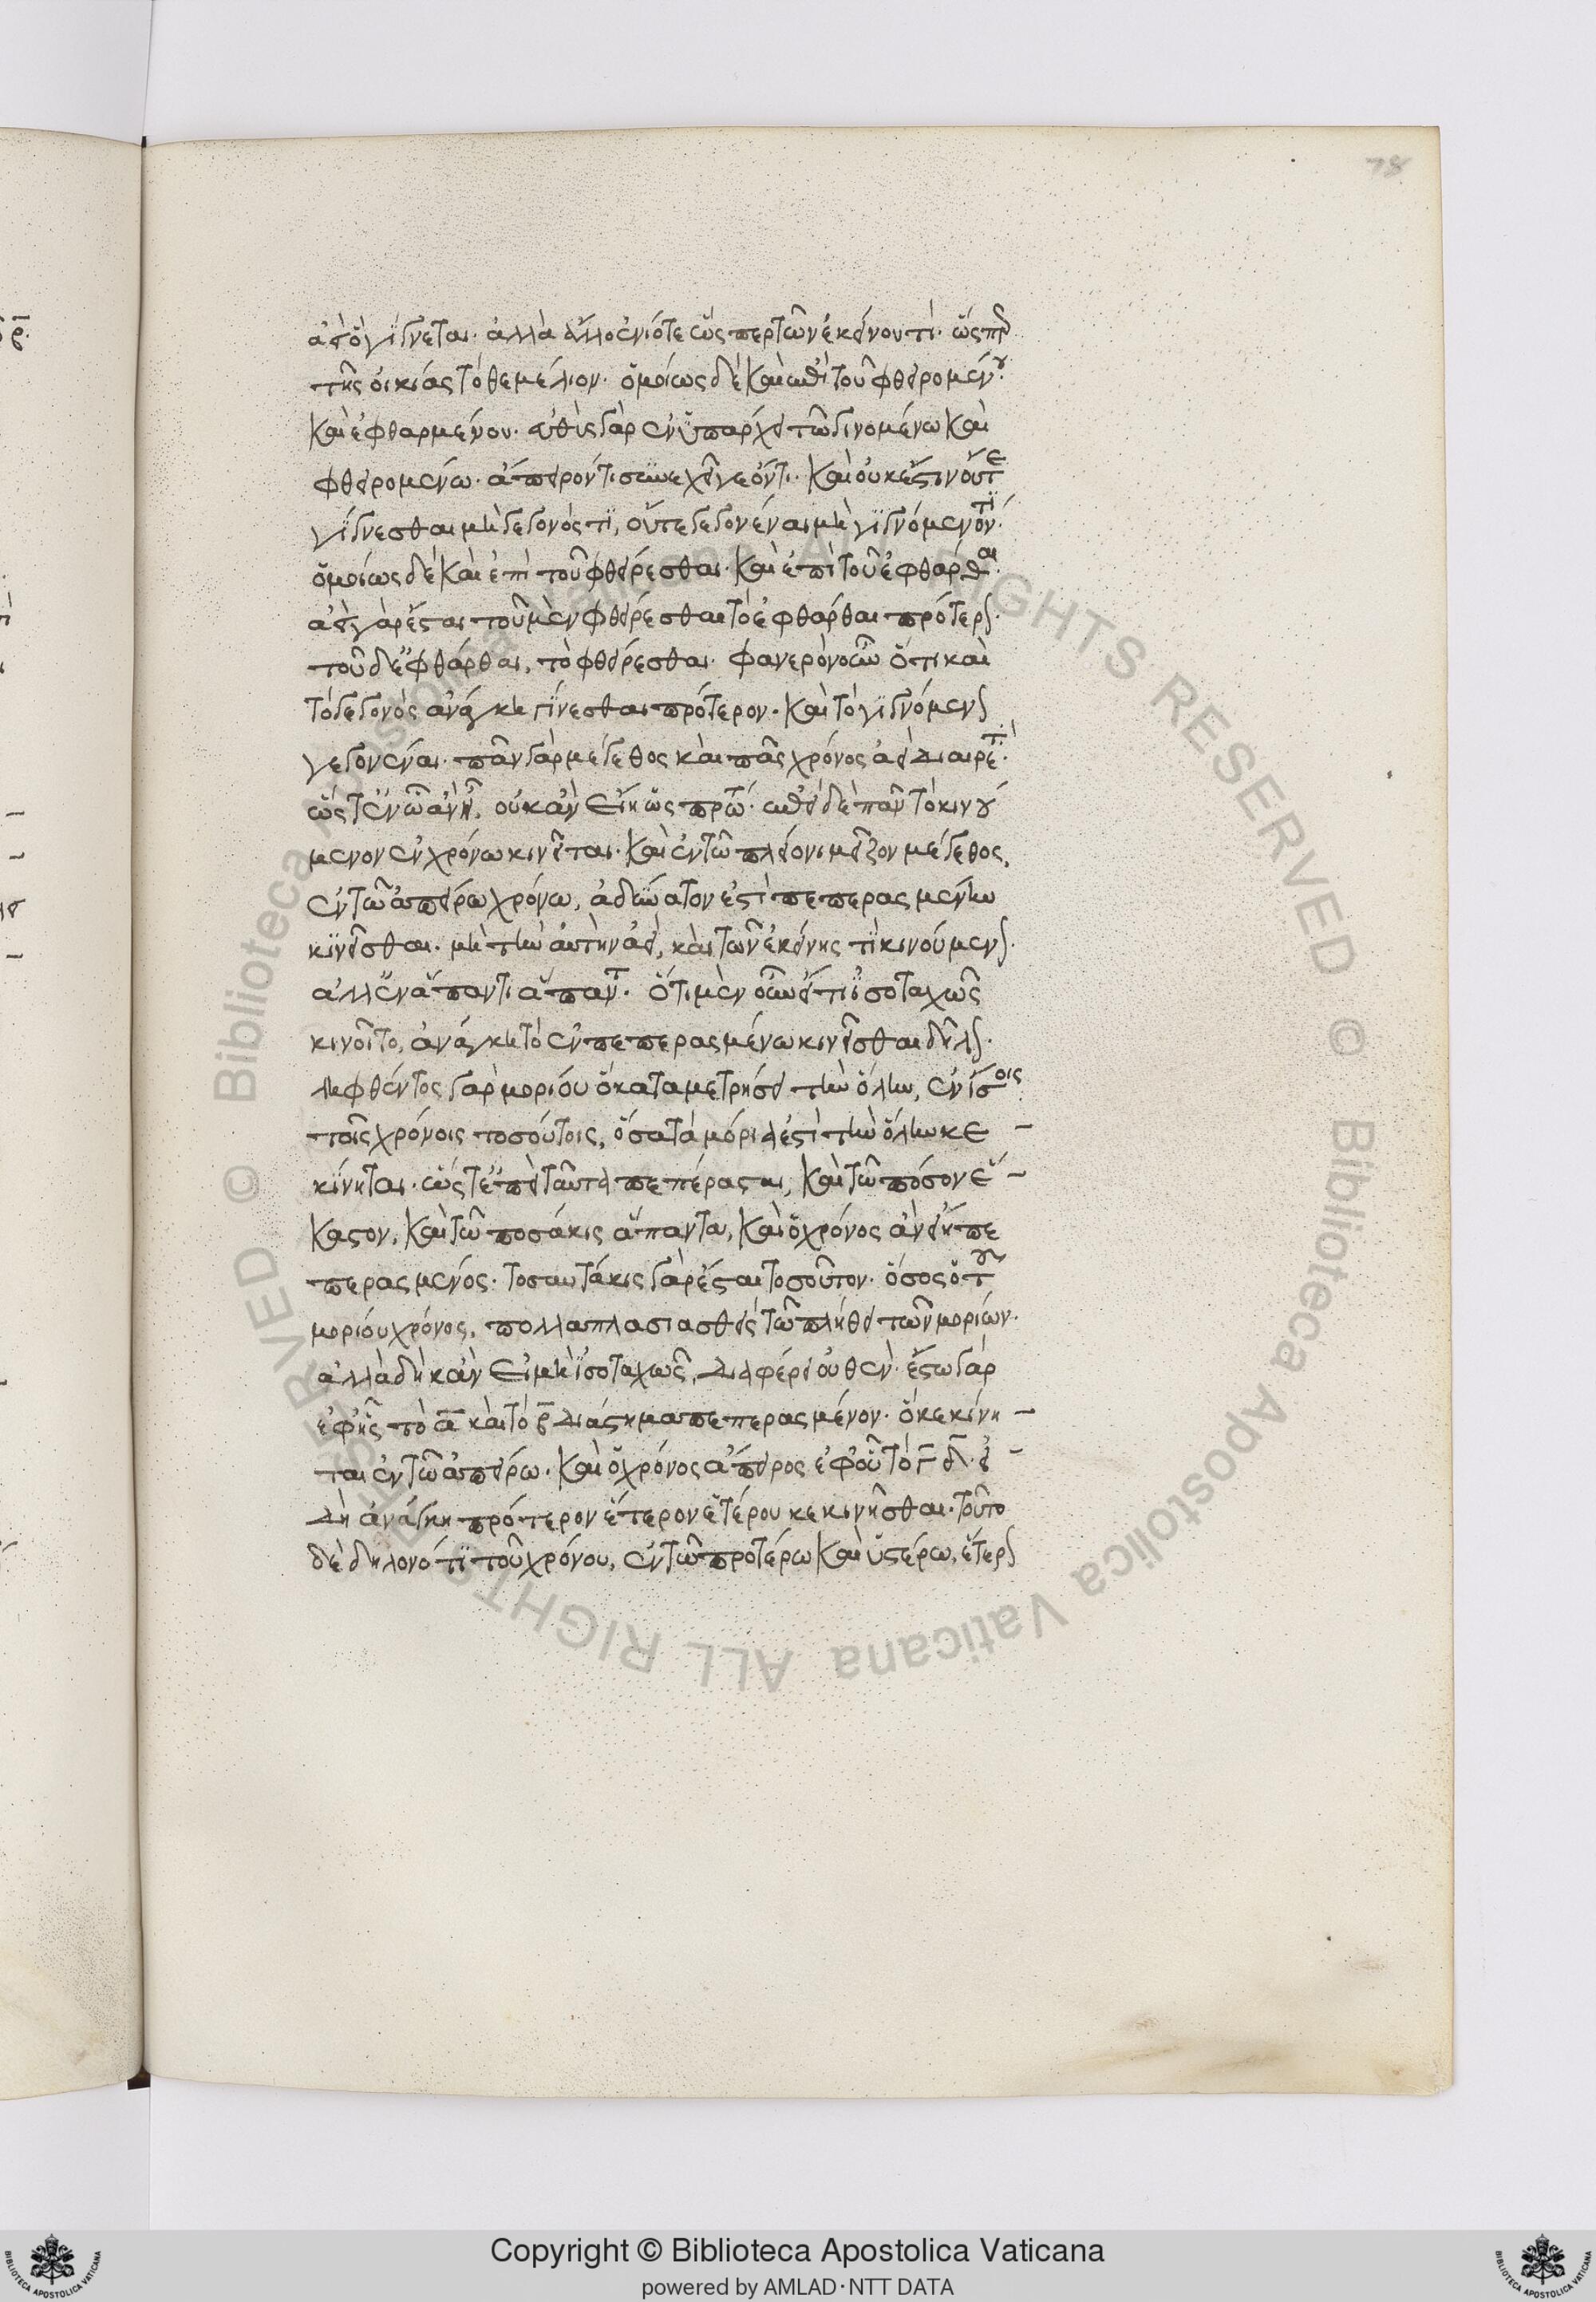 78
αεὶ ὃ γίγνεται· ἀλλὰ ἄλλο ἐνίοτε ὥσπερ τῶν ἐκείνου τί· ὥσπερ
τῆς οἰκίας τὸ θεμέλιον· ὁμοίως δὲ καὶ ἐπὶ τοῦ φθειρομένου
καὶ ἐφθαρμένου· εὐθὺς γὰρ ἐνυπάρχει τῶ γινομένω καὶ
φθειρομένω· ἄπειρόν τι συνεχεῖ γε ὄντι· καὶ οὐκ ἔστιν οὔτε
γίγνεσθαι μὴ γεγονός τι, οὔτε γεγονέναι μὴ γιγνόμενόν τι·
ὁμοίως δὲ καὶ ἐπὶ τοῦ φθείρεσθαι· καὶ ἐπὶ τοῦ ἐφθάρθαι·
αεὶ γὰρ ἔσται τοῦ μὲν φθείρεσθαι τὸ ἐφθάρθαι πρότερον·
τοῦ δὲ ἐφθάρθαι, τὸ φθείρεσθαι· φανερὸν οὖν ὅτι καὶ
τὸ γεγονὸς ἀνάγκη γίνεσθαι πρότερον· καὶ τὸ γιγνόμενον
γεγονέναι· πᾶν γὰρ μέγεθος καὶ πᾶς χρόνος ἀεὶ διαιρετά·
ὥστ' ἐν ὧ ἂν ἦ, οὐκ ἂν εἴη ὡς πρώτω· ἐπεὶ δὲ πᾶν τὸ κινού
μενον ἐν χρόνω κινεῖται· καὶ ἐν τῶ πλείονι μεῖζον μέγεθος,
ἐν τῶ ἀπείρω χρόνω, ἀδύνατόν ἐστι πεπερασμένην
κινεῖσθαι· μὴ τὴν αὐτὴν ἀεὶ, καὶ τῶν ἐκείνης τι κινούμενον·
ἀλλ' ἐν ἅπαντι ἅπασαν· ὅτι μὲν οὖν εἴ τι ἰσοταχῶς
κινοῖτο, ἀνάγκη τὸ ἐν πεπερασμένω κινεῖσθαι δῆλον·
ληφθέντος γὰρ μορίου ὃ καταμετρήσει τὴν ὅλην, ἐν ἴσοις
τοῖς χρόνοις τοσούτοις, ὅσα τὰ μόριά ἐστι τὴν ὅλην κε –
κίνηται· ὥστ' ἐπεὶ ταῦτα πεπέρασται, καὶ τῶ πόσον ἕ –
καστον, καὶ τῶ ποσάκις ἅπαντα, καὶ ὁ χρόνος ἂν εἴη πε
περασμένος· τοσαυτάκις γὰρ ἔσται τοσοῦτον· ὅσος ὁ τοῦ
μορίου χρόνος, πολλαπλασιασθεὶς τῶ πλήθει τῶν μορίων·
ἀλλὰ δὴ κἂν εἰ μὴ ἰσοταχῶς, διαφέρει οὐθέν· ἔστω γὰρ
ἐφ' ἧς τὸ α καὶ τὸ β διάστημα πεπερασμένον· ὃ κεκίνη –
ται ἐν τῶ ἀπείρω· καὶ ὁ χρόνος ἄπειρος ἐφ' οὗ τὸ γδ· εἰ –
δὴ ἀνάγκη πρότερον ἕτερον ἑτέρου κεκινῆσθαι· τοῦτο
δὲ δῆλον ὅτι τοῦ χρόνου, ἐν τῶ προτέρω καὶ ὑστέρω, ἕτερον
Copyright © Biblioteca Apostolica Vaticana
powered by AMLAD·NTT DATA